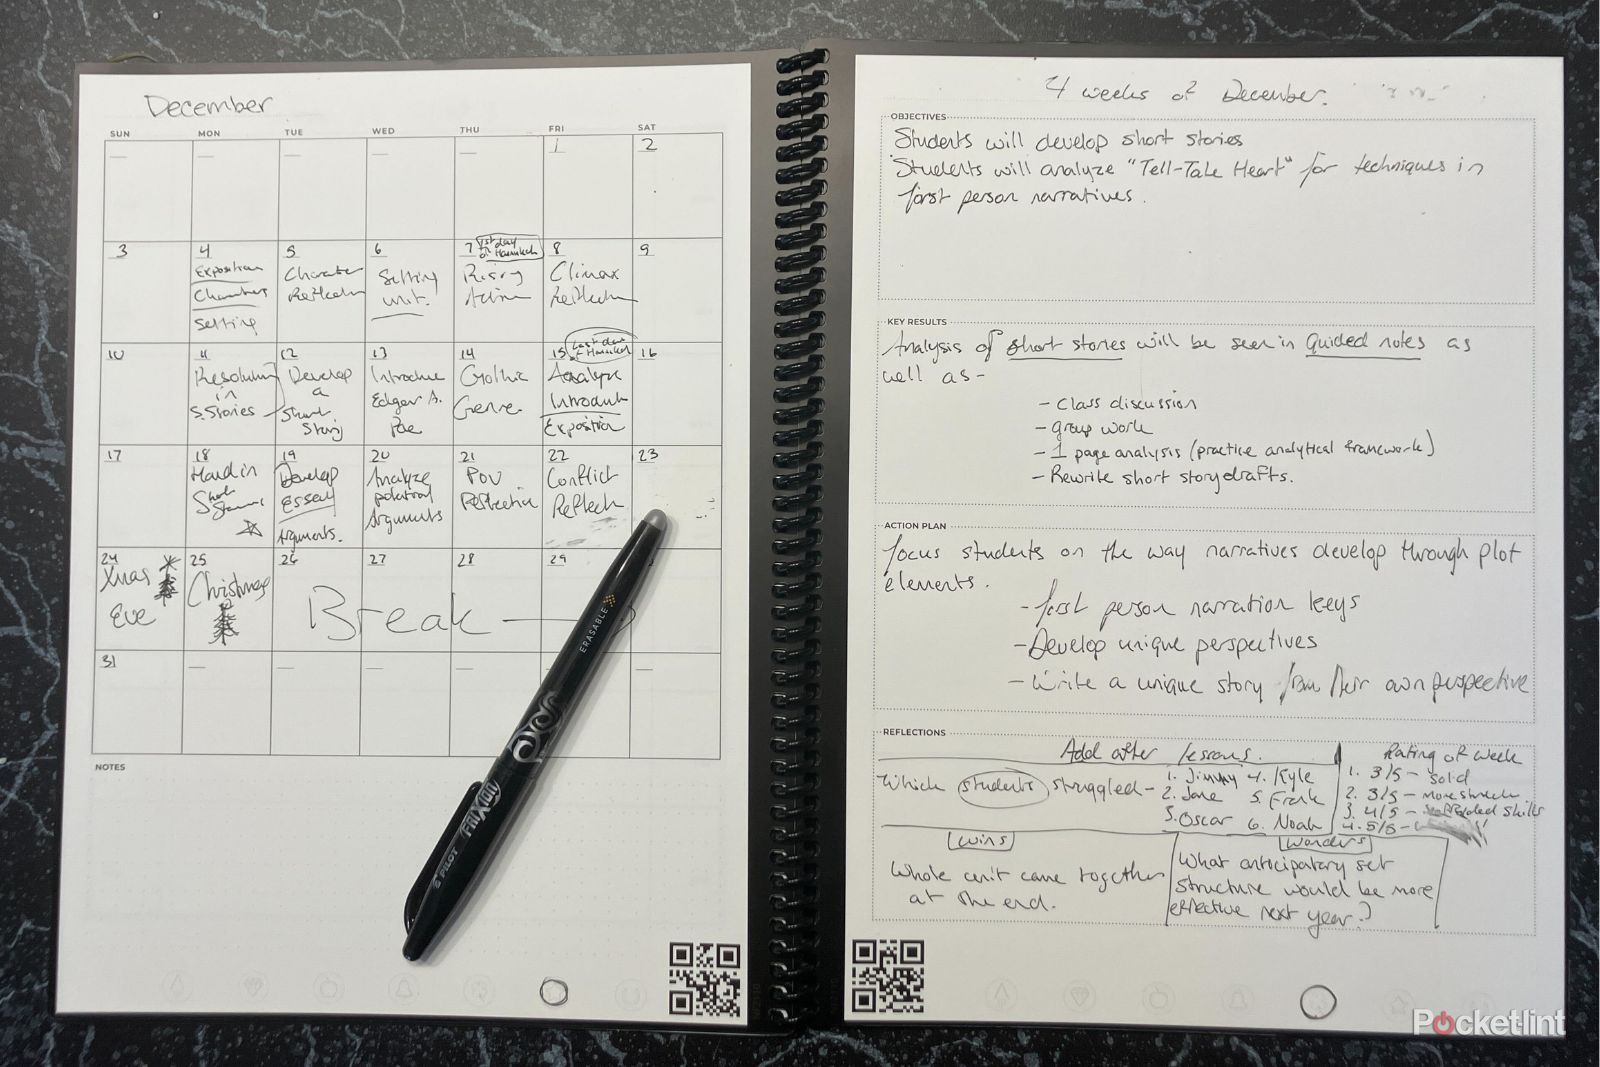 December
SUN MON TUE WED THU FRI SAT
1 2
3 4 5 6 7 8 9
1st day of Hanukah
Exposition
Setting
Character
Reflection
Setting
unit.
Rising
Action
Climax
Reflection
10 11 12 13 14 15 16
Last day of Hanukah
Resolution
in
S. Stories
Develop
a
Short
Story
Introduce
Edgar A.
Poe
Gothic
Genre
Analyze
Exposition
17 18 19 20 21 22 23
Hand in
Short
Develop
Essay
Arguments.
Analyze
Arguments
POV
Reflection
Conflict
Reflection
24 25 26 27 28 29
Xmas
Eve
Christmas
Break
31
NOTES
PILOT FRIXION
ERASABLE
4 weeks of December.
OBJECTIVES
Students will develop short stories
Students will analyze "Tell-Tale Heart" for techniques in
first person narratives.
KEY RESULTS
Analysis of short stories will be seen in guided notes as
well as -
- class discussion
- group work
- 1 page analysis (practice analytical framework)
- Rewrite short story drafts.
ACTION PLAN
focus students on the way narratives develop through plot
elements.
- first person narration keys
- Develop unique perspectives
- Write a unique story from their own perspective
REFLECTIONS
Add after lessons.
Which students struggled -
1. Jimmy 4. Kyle
2. Jane 5. Frank
3. Oscar 6. Noah
Rating of week
1. 3/5 - solid
2. 3/5 - more structure
3. 4/5 - scaffolded skills
4. 5/5 -
Wins
Whole unit came together
at the end.
Wonders
What anticipatory set
structure would be more
effective next year?
Pocketlint